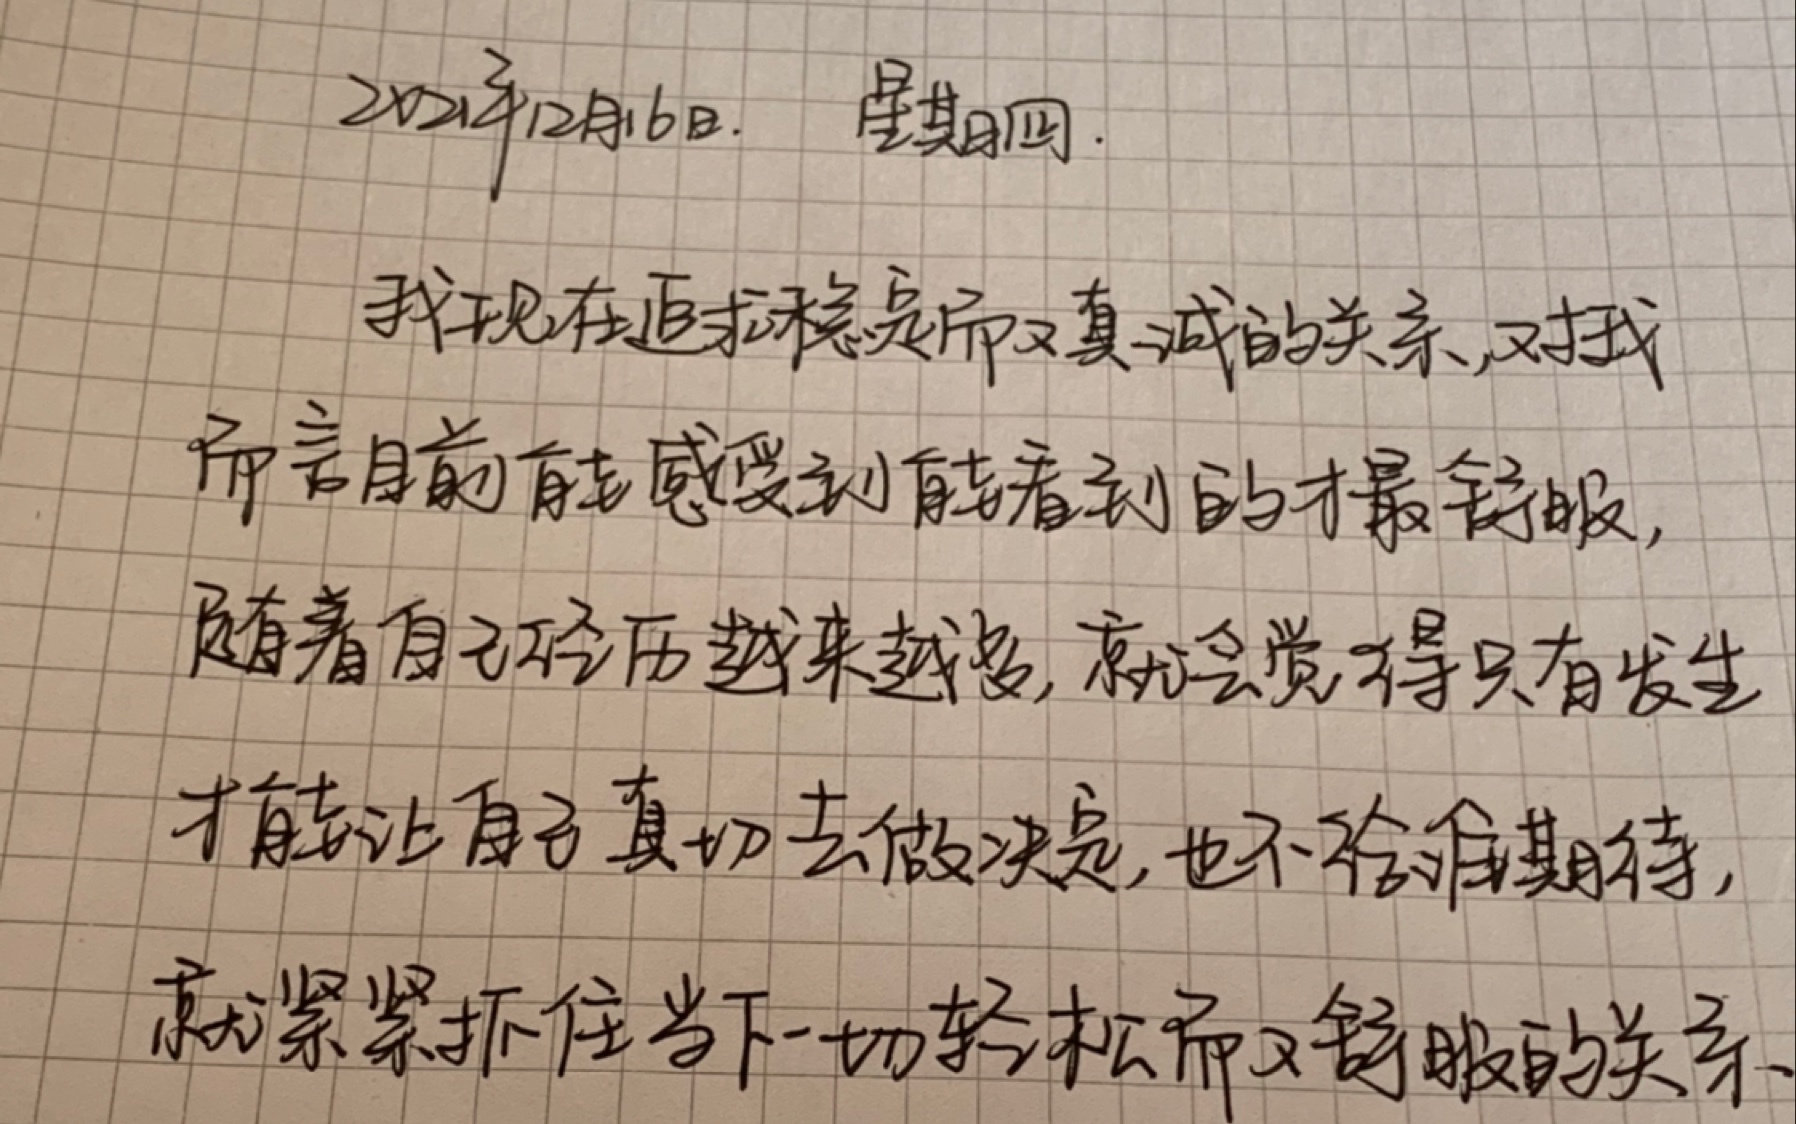 2021年12月16日. 星期四.
我现在追求稳定而又真诚的关系,对我
而言目前能感受到能看到的才最舒服,
随着自己经历越来越多,就会觉得只有发生
才能让自己真切去做决定,也不给谁期待,
就紧紧抓住当下一切轻松而又舒服的关系、